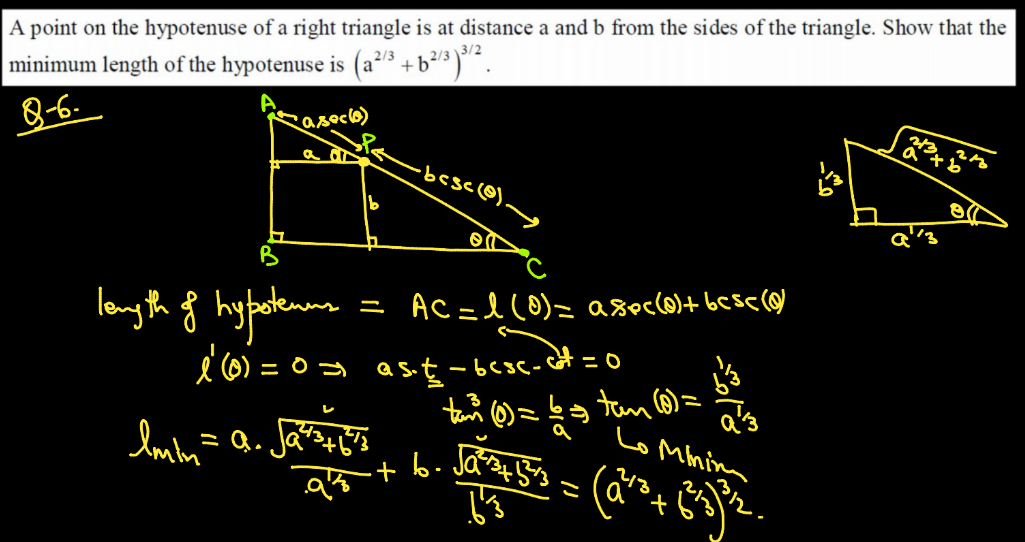 A point on the hypotenuse of a right triangle is at distance a and b from the sides of the triangle. Show that the
minimum length of the hypotenuse is (a^{2/3} + b^{2/3})^{3/2}.
Q-6.
A
a sec(θ)
P
a θ
b csc(θ)
b
θ
B
C
b^{1/3}
√(a^{2/3} + b^{2/3})
θ
a^{1/3}
length of hypotenuse = AC = l(θ) = a sec(θ) + b csc(θ)
l'(θ) = 0 ⇒ a s.t - b csc. cot = 0
tan³(θ) = b/a ⇒ tan(θ) = b^{1/3}/a^{1/3}
↳ Minim
l_{min} = a. √(a^{2/3} + b^{2/3})/a^{1/3} + b. √(a^{2/3} + b^{2/3})/b^{1/3} = (a^{2/3} + b^{2/3})^{3/2}.